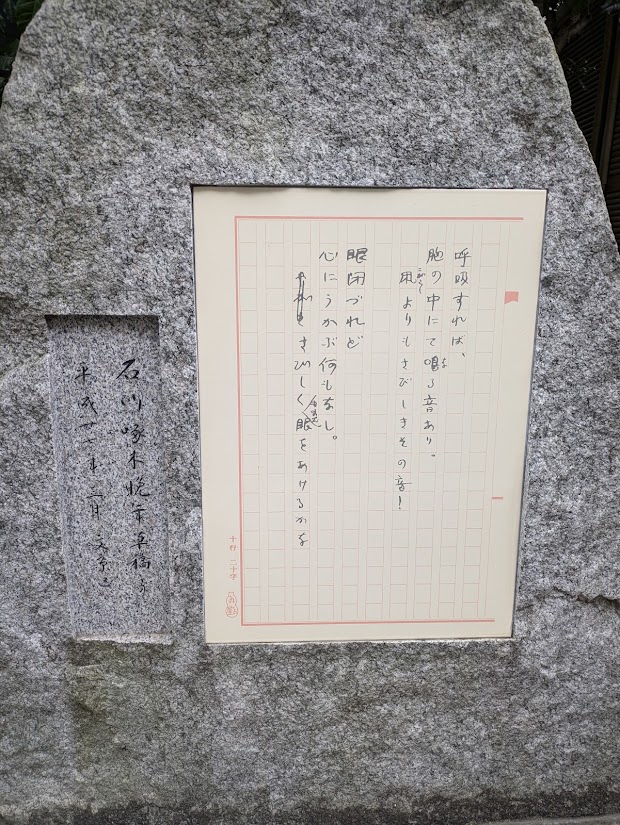 呼吸すれば、
胸の中にて鳴る音あり。
な
凩よりもさびしきその音!
こがらし
眼閉づれど
心にうかぶ何もなし。
さびしくまた眼をあけるかな
十行 二十字
石川啄木晩年草稿